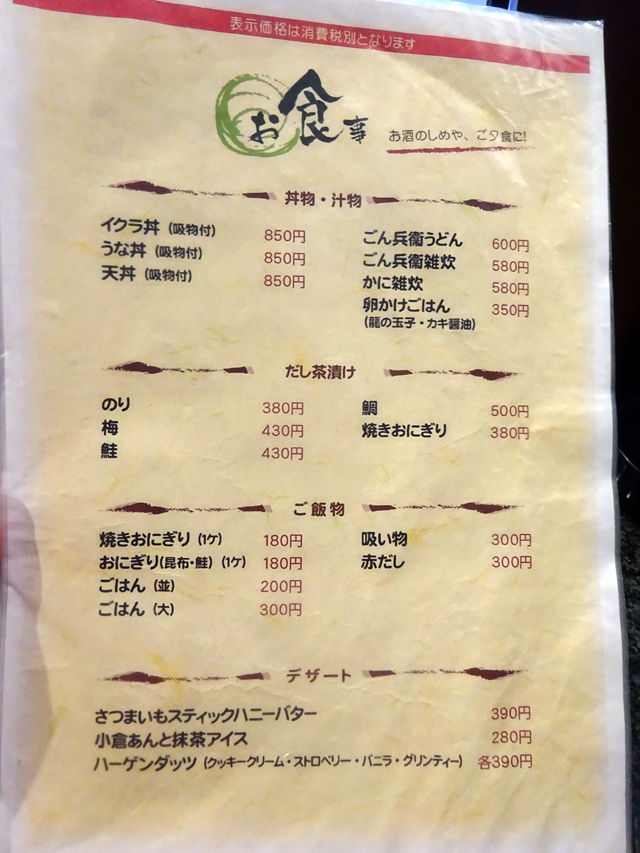 表示価格は消費税別となります
お食事
お酒のしめや、ご夕食に!
丼物・汁物
イクラ丼 (吸物付) 850円
うな丼 (吸物付) 850円
天丼 (吸物付) 850円
ごん兵衛うどん 600円
ごん兵衛雑炊 580円
かに雑炊 580円
卵かけごはん 350円
(龍の玉子・カキ醤油)
だし茶漬け
のり 380円
梅 430円
鮭 430円
鯛 500円
焼きおにぎり 380円
ご飯物
焼きおにぎり (1ケ) 180円
おにぎり(昆布・鮭) (1ケ) 180円
ごはん (並) 200円
ごはん (大) 300円
吸い物 300円
赤だし 300円
デザート
さつまいもスティックハニーバター 390円
小倉あんと抹茶アイス 280円
ハーゲンダッツ (クッキークリーム・ストロベリー・バニラ・グリンティー) 各390円